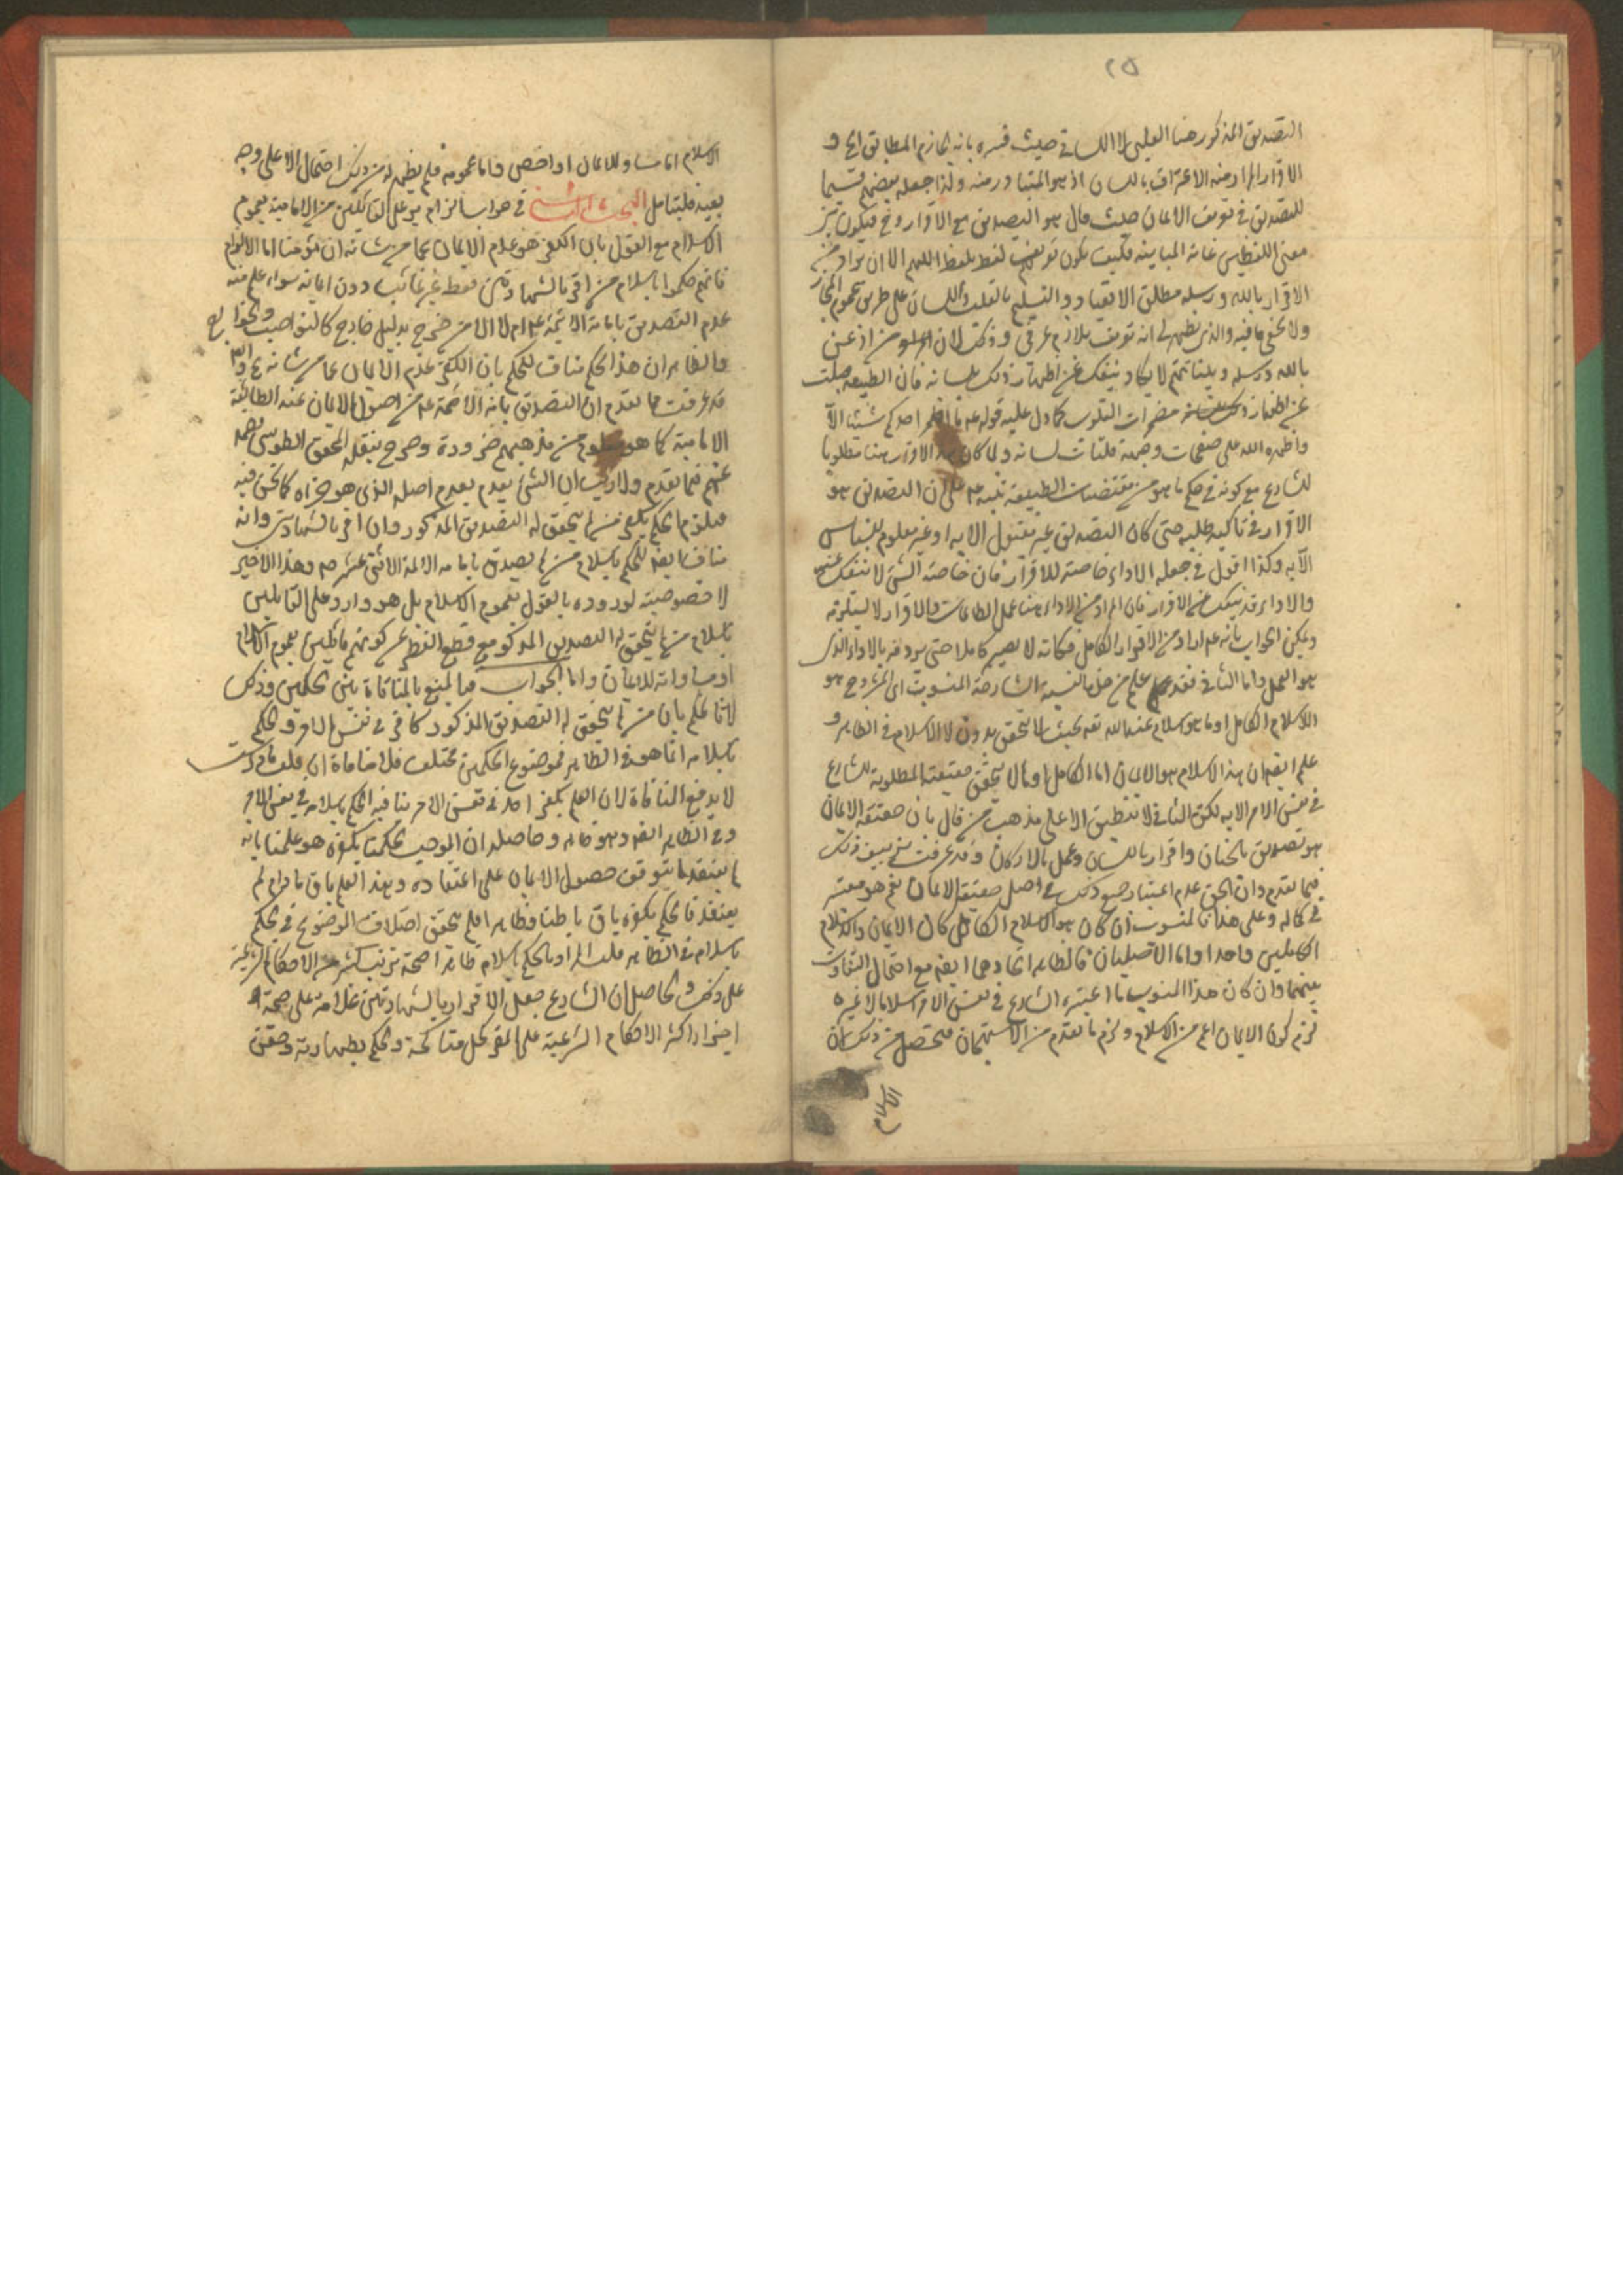 ٢٥
التصديق المذكور هنا القلبى لا اللسانى حيث فسره بانه الجازم المطابق الخ و
الاقرار المراد منه الاعتراف باللسان اذ هو المتبادر منه ولذا جعله بعضهم قسيما
للتصديق فى تعريف الايمان حيث قال هو التصديق مع الاقرار وح فيكون بين
معنى اللفظين غاية المباينة فكيف يكون تعريف لفظ بلفظ اللهم الا ان يراد من
الاقرار بالله ورسله مطلق الانقياد والتسليم بالقلب واللسان على طريق عموم المجاز
ولا يخفى ما فيه والذى يظهر لى انه تعريف بلازم عرفى وذلك لان من اذعن
بالله ورسله وبيناتهم لا يكاد ينفك عن اظهار ذلك بلسانه فان الطبيعة جبلت
على اظهار مضمرات القلوب كما دل عليه قوله ع ما اضمر احدكم شيئا الا
واظهره الله على صفحات وجهه وفلتات لسانه ولما كان هذا الاقرار هنا مطلوبا
للشارع مع كونه فى حكم ما هو من مقتضيات الطبيعة نبه ع على ان التصديق هو
الاقرار فى تاكيد طلبه حتى كان التصديق غير مقبول الا به او غير معلوم للناس
الا به وكذا القول فى جعله الاداء خاصته للاقرار فان خاصة الشئ لا تنفك عنه
والاداء قد ينفك عن الاقرار فان المراد من الاداء هنا عمل الطاعات والاقرار لا يستلزمه
ويمكن الجواب بانه ع اراد من الاقرار الكامل فكانه لا يصير كاملا حتى يردفه بالاداء الذى
هو العمل واما الثانى فقد علم من هذه النسبة الشارحة المنسوب اى المشروح هو
الاسلام الكامل او ما هو اسلام عند الله تعه بحيث لا يتحقق بدون الاسلام فى الظاهر و
علم ايضه ان هذا الاسلام هو الايمان اما الكامل او ما لا يتحقق حقيقته المطلوبة للشارع
فى نفس الامر الا به لكن الثانى لا ينطبق الا على مذهب من قال بان حقيقة الايمان
هو تصديق بالجنان واقرار باللسان وعمل بالاركان وقد عرفت تزييف ذلك
فيما تقدم وان الحق عدم اعتبار جميع ذلك فى اصل حقيقة الايمان نعم هو معتبر
فى كماله وعلى هذا فالمنسوب ان كان هو الاسلام الكامل كان الايمان والاسلام
الكاملين واحدا واما الاصليان فالظاهر اتحادهما ايضه مع احتمال التفاوت
بينهما وان كان هذا المنسوب ما اعتبره الشارع فى نفس الامر اسلاما لا غيره
لزم كون الايمان اعم من الاسلام ولزم ما تقدم من الاستهجان فيحصل من ذلك ان
الاسلام
الاسلام اما مساو للايمان او اخص واما عمومه فلم يظهر له من ذلك احتمال الا على وجه
بعيد فليتامل البحث الثانى فى جواب الزام يرد على القائلين من الامامية بعموم
الاسلام مع القول بان الكفر هو عدم الايمان عما من شانه ان يكون مؤمنا اما الالزام
فانهم حكموا باسلام من اقر بالشهادتين فقط غير عابث دون ايمانه سواء علم منه
عدم التصديق بامامة الائمة ع ام لا الا من خرج بدليل خارج كالنواصب والخوارج
والظاهر ان هذا الحكم مناف للحكم بان الكفر عدم الايمان عما من شانه
قد عرفت مما تقدم ان التصديق بامامة الائمة ع من اصول الايمان عند الطائفة
الامامية كما هو معلوم من مذهبهم ضرورة وصرح بنقله المحقق الطوسى رحمه
عنهم فيما تقدم ولا ريب ان الشئ يعدم بعدم اصله الذى هو جزاه كما نحن فيه
فيلزم الحكم بكفر من لم يتحقق له التصديق المذكور وان اقر بالشهادتين وانه
مناف ايضه للحكم باسلام من لم يصدق بامامة الائمة الاثنى عشر ع وهذا الاخير
لا خصوصية لوروده بالقول بعموم الاسلام بل هو وارد على القائلين
باسلام من لم يتحقق له التصديق المذكور مع قطع النظر عن كونهم قائلين بعموم الاسلام
او مساواته للايمان واما الجواب فبالمنع بالمنافاة بين الحكمين وذلك
لانا نحكم بان من لم يتحقق له التصديق المذكور كافر فى نفس الامر والحكم
باسلامه انما هو فى الظاهر فموضوع الحكمين مختلف فلا منافاة ان قلت ما ذكرت
لا يدفع المنافاة لان العلم بكفر احد فى نفس الامر ينافيه الحكم باسلامه فى نفس الامر
وفى الظاهر ايضه وهو ظاهر وحاصله ان الموجب لحكمنا بكفره هو علمنا بانه
لم يعتقد ما يتوقف حصول الايمان على اعتقاده وهذا العلم باق ما دام لم
يعتقد فالحكم بكفره باق باطنا وظاهرا فلم يتحقق اختلاف الموضوع فى الحكم
باسلامه فى الظاهر قلت المراد بالحكم باسلامه ظاهرا صحة ترتب كثير من الاحكام الشرعية
على ذلك والحاصل ان الشارع جعل الاقرار بالشهادتين علامة على صحة
اجراء اكثر الاحكام الشرعية على المقر كحل مناكحته والحكم بطهارته وحقن